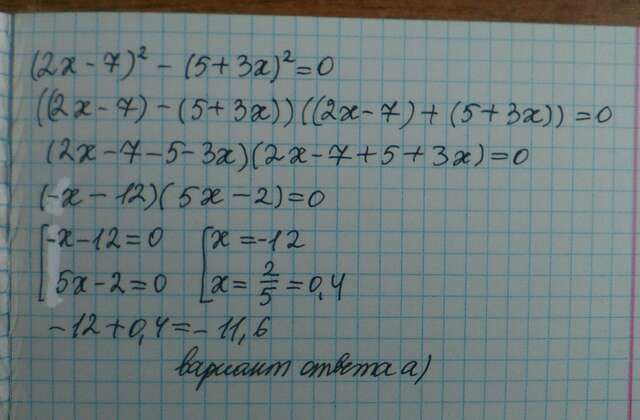 (2x - 7)² - (5 + 3x)² = 0
((2x - 7) - (5 + 3x)) ((2x - 7) + (5 + 3x)) = 0
(2x - 7 - 5 - 3x)(2x - 7 + 5 + 3x) = 0
(-x - 12)(5x - 2) = 0
[-x - 12 = 0 [x = -12
5x - 2 = 0 x = 2/5 = 0,4
-12 + 0,4 = -11,6
вариант ответа а)